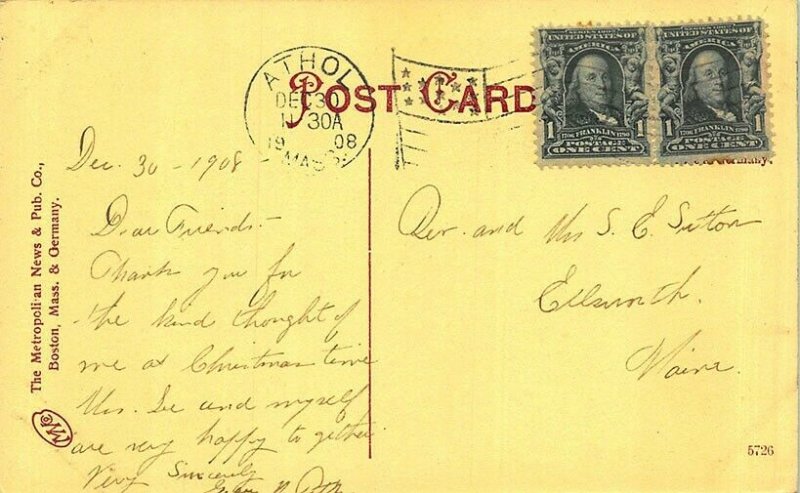 POST CARD
ATHOL
DEC 30
11 30A
1908
MASS.
SERIES 1902
UNITED STATES OF
AMERICA
1706 FRANKLIN 1790
1 POSTAGE 1
ONE CENT
SERIES 1902
UNITED STATES OF
AMERICA
1706 FRANKLIN 1790
1 POSTAGE 1
ONE CENT
Germany.
The Metropolitan News & Pub. Co.,
Boston, Mass. & Germany.
Dec. 30 - 1908
Dear Friends -
Thank you for
the kind thought of
me at Christmas time
Mrs. and myself
are very happy to gether
Very Sincerely
Rev. and Mrs S. E. Sutton
Ellsworth.
Maine.
5726